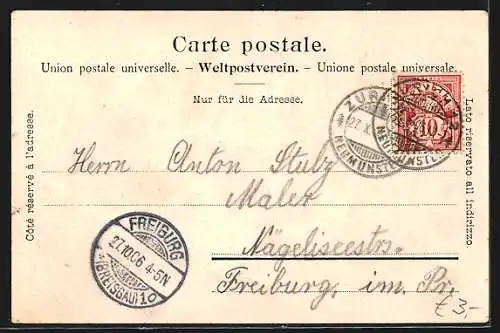 Carte postale.
Union postale universelle. – Weltpostverein. – Unione postale universale.
Nur für die Adresse.
Côté réservé à l'adresse.
Lato riservato all indirizzo.
ZÜRI
27. X.
NEUMÜNSTE
10
Herrn Anton Stulz
Maler
Nägeliseestrs.
Freiburg, im. Pr.
FREIBURG
27.10.06 4-5N
(BREISGAU) 1
€ 3,-